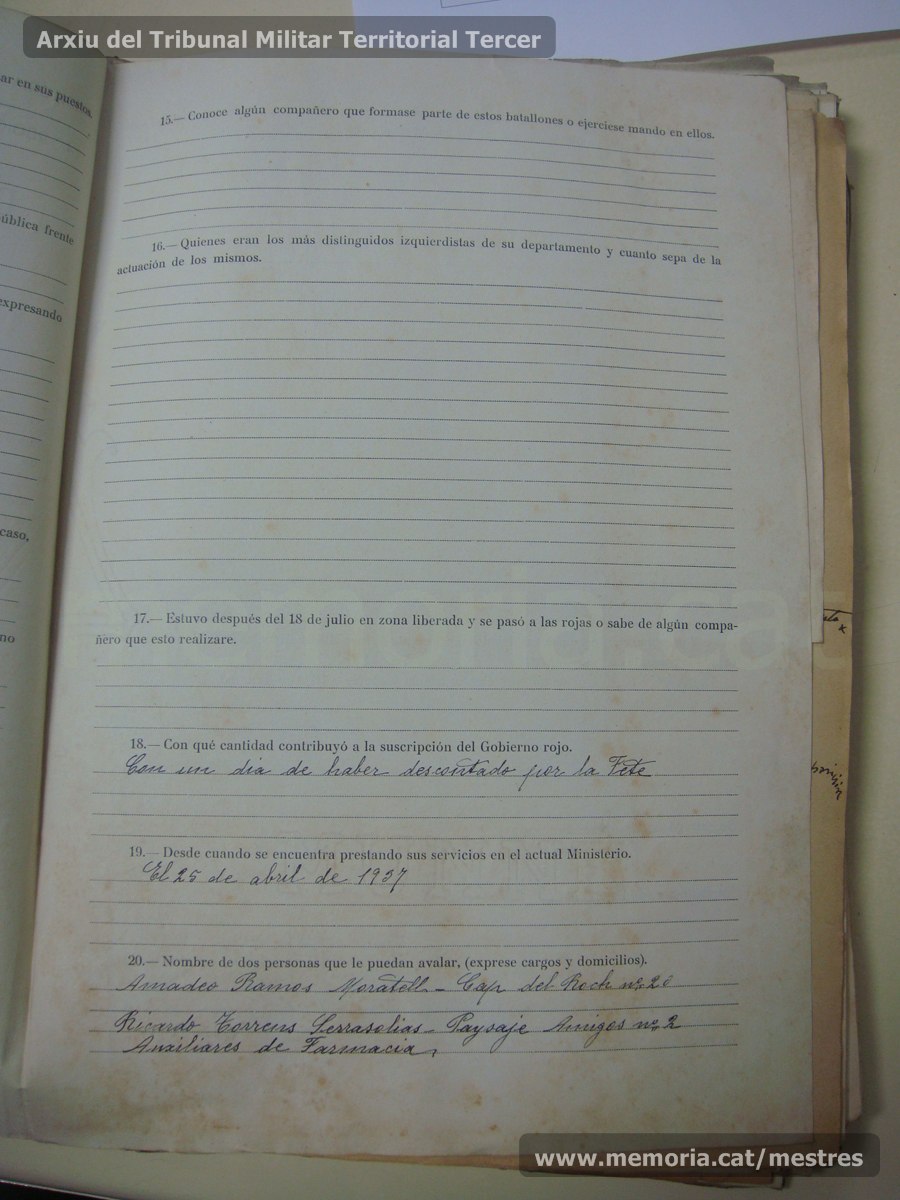 Arxiu del Tribunal Militar Territorial Tercer
ar en sus puestos.
ública frente
expresando
caso,
no
15.— Conoce algún compañero que formase parte de estos batallones o ejerciese mando en ellos.
16.— Quienes eran los más distinguidos izquierdistas de su departamento y cuanto sepa de la
actuación de los mismos.
17.— Estuvo después del 18 de julio en zona liberada y se pasó a las rojas o sabe de algún compa-
ñero que esto realizare.
18.— Con qué cantidad contribuyó a la suscripción del Gobierno rojo.
Con un dia de haber descontado por la Fete
19.— Desde cuando se encuentra prestando sus servicios en el actual Ministerio.
El 25 de abril de 1937
20.— Nombre de dos personas que le puedan avalar, (exprese cargos y domicilios).
Amadeo Ramos Moratell - Cap del Roch nº 20
Ricardo Torrens Serrasolias - Paysaje Amigos nº 2
Auxiliares de Farmacia,
memoria.cat
www.memoria.cat/mestres